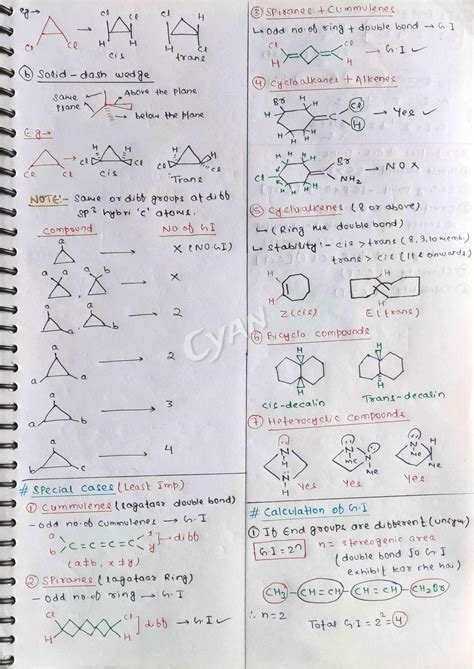 eg→
Cl Cl
H H
Cl Cl
cis
H Cl
Cl H
trans
(b) Solid-dash wedge
Same Plane
Above the plane
below the plane
Eg→
Cl Cl
Cl Cl
cis
Cl Cl
Trans
NOTE:- Same or diff groups at diff
SP³ hybri 'c' atoms.
Compound No of GI
a → X (NO GI)
a a, a a → X
a a b, a b → 2
a a b → 2
a a b → 3
a b c → 4
# Special cases (Least Imp.)
① Cummulenes (lagataar double bond)
- Odd no. of cummulenes → G.I
a b C=C=C=C x y } → diff
(a≠b, x≠y)
② Spiranes (lagataar Ring)
- Odd no. of ring → G.I
Cl H Cl H } diff → G.I ✓
③ Spiranes + Cummulenes
↳ Odd no. of ring + double bond → G.I
Cl H Cl H → G.I ✓
④ Cycloalkanes + Alkenes
Br H Cl H → Yes ✓
Cl H Br NH₂ → NO X
⑤ Cycloalkenes (8 or above)
↳ (Ring me double bond)
↳ Stability :- cis > trans (8,9,10 memb.)
trans > cis (11 & onwards)
Z (cis) E (trans)
⑥ Bicyclo compounds
H H
cis-decalin
H H
Trans-decalin
⑦ Heterocyclic compounds
N H N H
Yes
N Me N Me
Yes
N Me H
Yes
# Calculation of G.I
① If End groups are different (unsym)
G.I = 2ⁿ n = stereogenic area
(double bond Jo G.I
exhibit kar rhe hai)
CH₃ - CH=CH - CH=CH - CH₂Br
∴ n=2 Total G.I = 2² = 4
CYAN